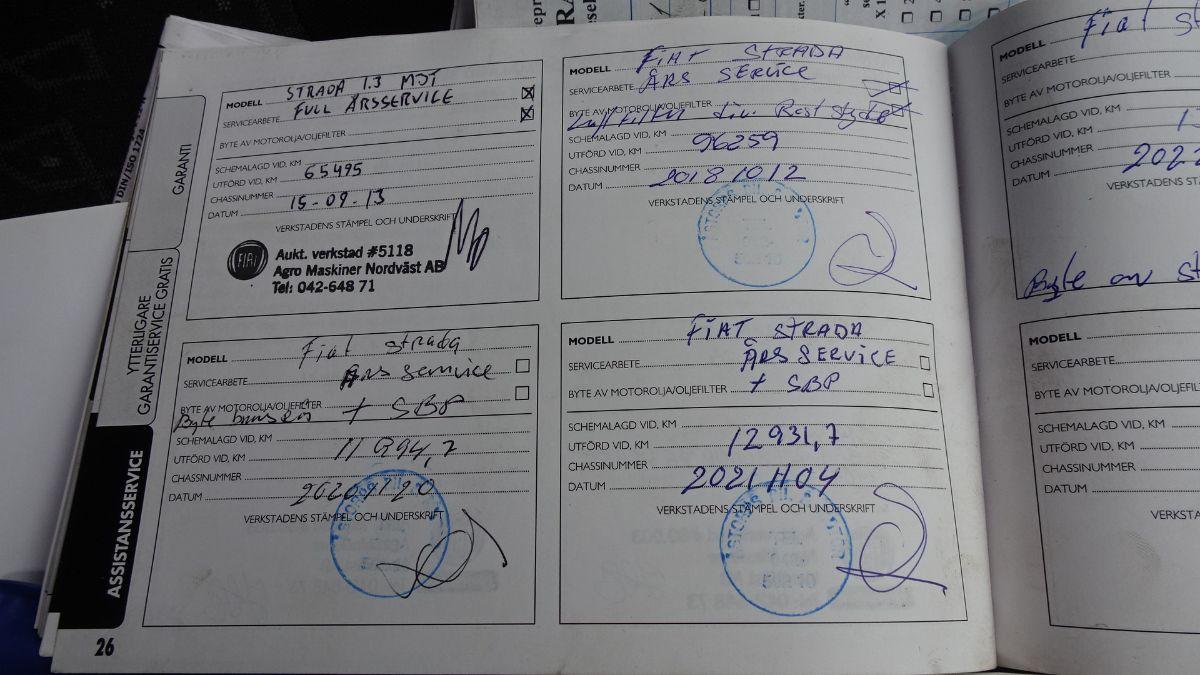 DIN/ISO 1724
GARANTI
YTTERLIGARE
GARANTISERVICE GRATIS
ASSISTANSSERVICE
MODELL STRADA 1.3 MJT
SERVICEARBETE FULL ÅRSSERVICE
BYTE AV MOTOROLJA/OLJEFILTER
SCHEMALAGD VID, KM
UTFÖRD VID, KM 65495
CHASSINUMMER
DATUM 15-09-13
VERKSTADENS STÄMPEL OCH UNDERSKRIFT
FIAT
Aukt. verkstad #5118
Agro Maskiner Nordväst AB
Tel: 042-648 71
MODELL FIAT STRADA
SERVICEARBETE ÅRS SERVICE
BYTE AV MOTOROLJA/OLJEFILTER
Luftfilter div.
SCHEMALAGD VID, KM
UTFÖRD VID, KM 96259
CHASSINUMMER
DATUM 20181012
VERKSTADENS STÄMPEL OCH UNDERSKRIFT
MODELL Fiat strada
SERVICEARBETE ÅRS service
BYTE AV MOTOROLJA/OLJEFILTER + SBP
Byte
SCHEMALAGD VID, KM
UTFÖRD VID, KM 11994,7
CHASSINUMMER
DATUM
VERKSTADENS STÄMPEL OCH UNDERSKRIFT
MODELL FIAT STRADA
SERVICEARBETE ÅRS SERVICE
BYTE AV MOTOROLJA/OLJEFILTER + SBP
SCHEMALAGD VID, KM
UTFÖRD VID, KM 12931,7
CHASSINUMMER
DATUM 20211104
VERKSTADENS STÄMPEL OCH UNDERSKRIFT
26
MODELL Fiat st
SERVICEARBETE
BYTE AV MOTOROLJA/OLJEFILTER
SCHEMALAGD VID, KM
UTFÖRD VID, KM
CHASSINUMMER 2022
DATUM
VERKSTADENS STÄ
Byte av st
MODELL
SERVICEARBETE
BYTE AV MOTOROLJA/OLJEFI
SCHEMALAGD VID, KM
UTFÖRD VID, KM
CHASSINUMMER
DATUM
VERKST